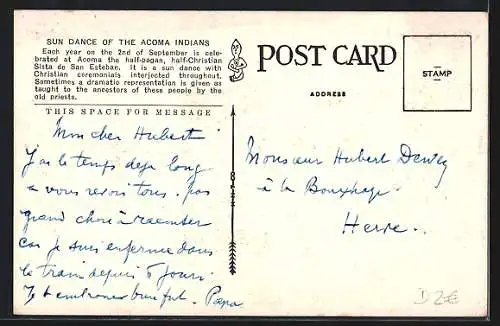 SUN DANCE OF THE ACOMA INDIANS
Each year on the 2nd of September is cele-
brated at Acoma the half-pagan, half-Christian
Sista de San Esteban. It is a sun dance with
Christian ceremonials interjected throughout.
Sometimes a dramatic representation is given as
taught to the ancestors of these people by the
old priests.
THIS SPACE FOR MESSAGE
Mon cher Hubert
J'ai le temps deja long
a vous revoir tous. pas
grand chose à raconter
car je suis enfermé dans
le train depuis 5 jours.
Papa
POST CARD
ADDRESS
STAMP
Monsieur Hubert Dewey
à la Bouxhaye
Herve.
D2€